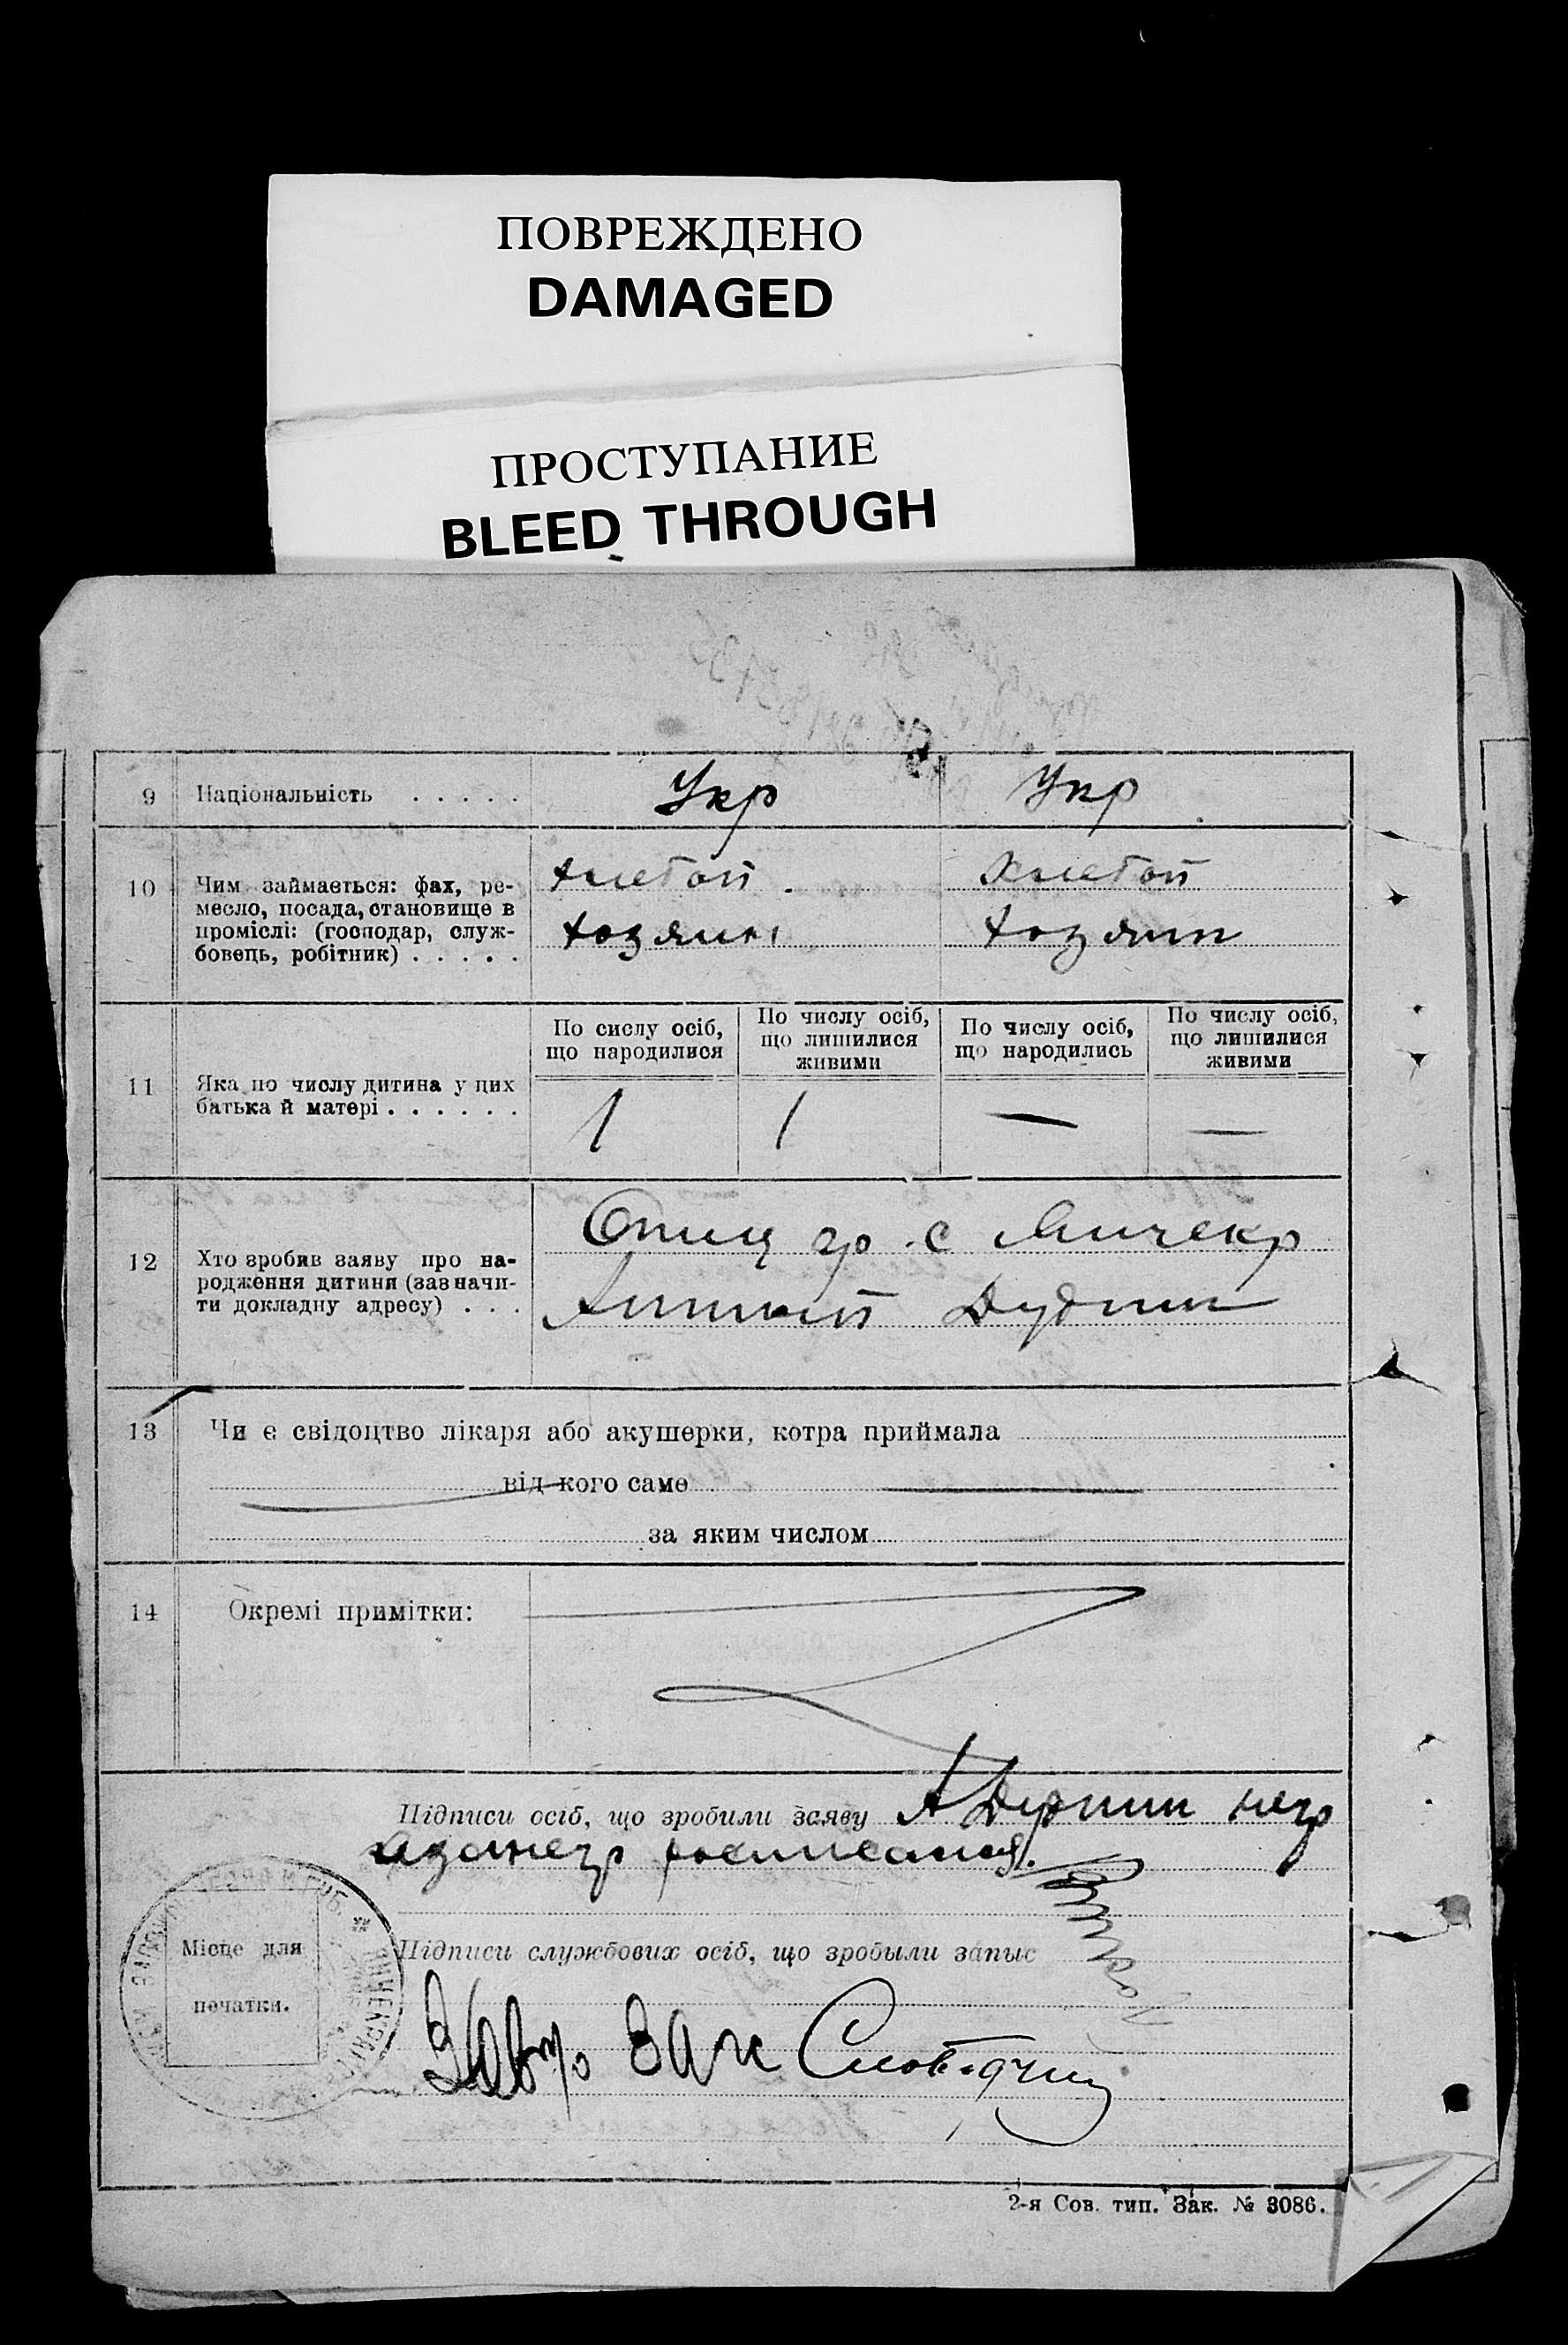 ПОВРЕЖДЕНО
DAMAGED
ПРОСТУПАНИЕ
BLEED THROUGH
9 Національність . . . . . Укр Укр
10 Чим займається: фах, ре-
месло, посада, становище в
проміслі: (господар, служ-
бовець, робітник) . . . . .
хлебоп. Хлебоп
хозяин хозяин
По сислу осіб,
що народилися
По числу осіб,
що лишилися
живими
По числу осіб,
що народились
По числу осіб,
що лишилися
живими
11 Яка по числу дитина у цих
батька й матері . . . . . .
1 1 — —
12 Хто зробив заяву про на-
родження дитини (зазначи-
ти докладну адресу) . . .
Отец гр. с Мичекр
Дудник
13 Чи є свідоцтво лікаря або акушерки, котра приймала
від кого саме
за яким числом
14 Окремі примітки:
Підписи осіб, що зробили заяву А Дудник негр
а за негр росписался
Місце для
печатки.
Підписи службових осіб, що зробыли запыс
Зав
2-я Сов. тип. Зак. № 3086.